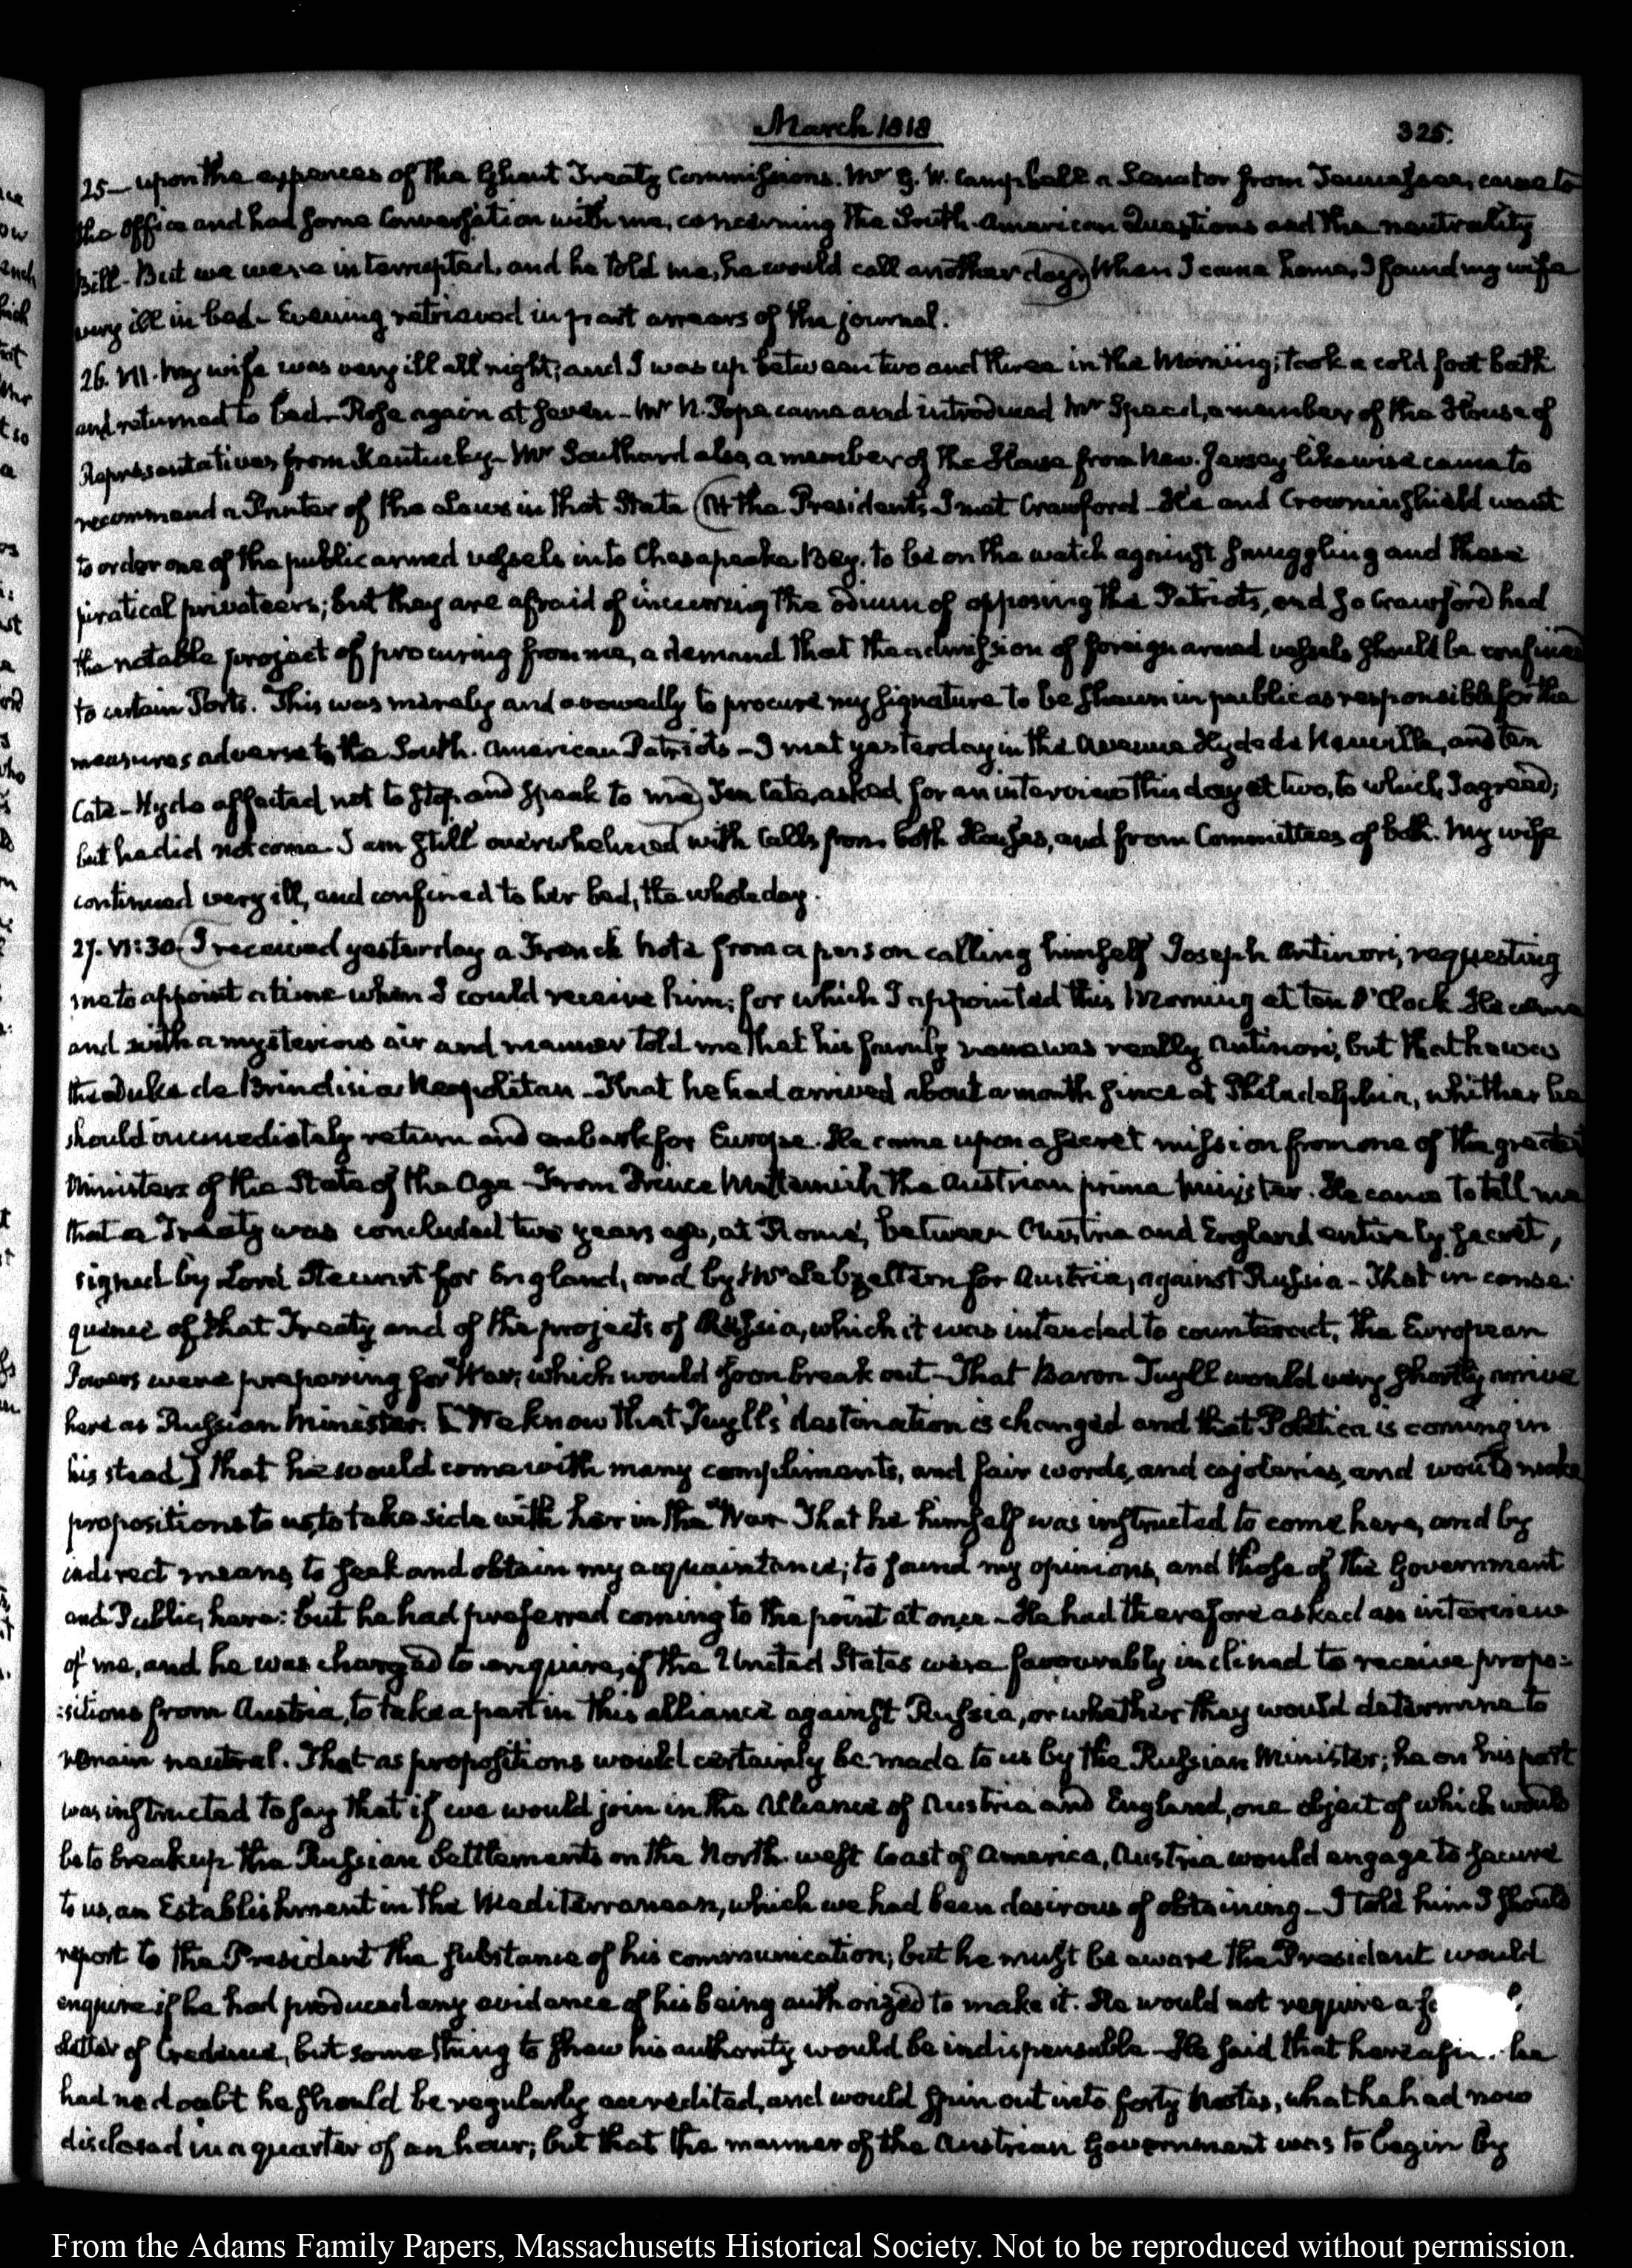 March 1818
325.
25— upon the expences of the Ghent Treaty Commissions. Mr G. W. Campbell a Senator from Tennessee, came to
the Office and had some Conversation with me, concerning the South-American Questions and the neutrality
Bill- But we were interrupted, and he told me, he would call another day. When I came home, I found my wife
very ill in bed- Evening retrieved in part arrears of the journal.
26. VII. My wife was very ill all night; and I was up between two and three in the Morning; took a cold foot bath
and returned to bed- Rose again at seven- Mr N. Pope came and introduced Mr Speed, a member of the House of
Representatives from Kentucky- Mr Southard also, a member of the House from New-Jersey likewise came to
recommend a Printer of the Laws in that State (At the President's I met Crawford- He and Crowninshield want
to order one of the public armed vessels into Chesapeake Bay, to be on the watch against smuggling and these
piratical privateers; but they are afraid of incurring the odium of opposing the Patriots, and so Crawford had
the notable project of procuring from me, a demand that the admission of foreign armed vessels should be confined
to certain Ports. This was merely and avowedly to procure my signature to be shewn in public as responsible for the
measures adverse to the South-American Patriots- I met yesterday in the Avenue Hyde de Neuville, and ten
Cate- Hyde affected not to stop and speak to me) Ten Cate, asked for an interview this day at two, to which, I agreed;
but he did not come. I am still overwhelmed with Calls from both Houses, and from Committees of both. My wife
continued very ill, and confined to her bed, the whole day.
27. VI:30. (I received yesterday a French Note from a person calling himself Joseph Antinori, requesting
me to appoint a time when I could receive him; for which I appointed this Morning at ten O'Clock. He came
and with a mysterious air and manner told me that his family name was really Antinori, but that he was
the Duke de Brindisi a Neapolitan- That he had arrived about a month since at Philadelphia, whither he
should immediately return and embark for Europe. He came upon a secret mission from one of the greatest
Ministers of the State of the Age- From Prince Metternich the Austrian prime Minister. He came to tell me
that a Treaty was concluded two years ago, at Rome, between Austria and England entirely secret,
signed by Lord Stewart for England, and by Mr Lebzeltern for Austria, against Russia- That in conse-
quence of that Treaty and of the projects of Russia, which it was intended to counteract, the European
Powers were preparing for War, which would soon break out- That Baron Tuyll would very shortly arrive
here as Russian Minister. [We know that Tuyll's destination is changed and that Poletica is coming in
his stead] that he would come with many compliments, and fair words, and cajoleries, and would make
propositions to us, to take side with her in the War- That he himself was instructed to come here, and by
indirect means, to seek and obtain my acquaintance; to sound my opinions, and those of the Government
and Public, here: but he had preferred coming to the point at once- He had therefore asked an interview
of me, and he was charged to enquire, if the United States were favourably inclined to receive propo=
:sitions from Austria, to take a part in this alliance against Russia, or whether they would determine to
remain neutral. That as propositions would certainly be made to us by the Russian Minister; he on his part
was instructed to say that if we would join in the Alliance of Austria and England, one object of which would
be to break up the Russian Settlements on the North-west Coast of America, Austria would engage to secure
to us, an Establishment in the Mediterranean, which we had been desirous of obtaining- I told him I should
report to the President the substance of his communication; but he must be aware the President would
enquire if he had produced any evidence of his being authorized to make it. He would not require a
Letter of Credence, but something to shew his authority would be indispensable- He said that he
had no doubt he should be regularly accredited, and would spin out into forty Notes, what he had now
disclosed in a quarter of an hour; but that the manner of the Austrian Government was to begin by
From the Adams Family Papers, Massachusetts Historical Society. Not to be reproduced without permission.